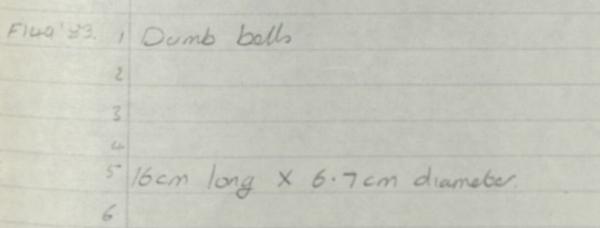 F1449'83. 1 Dumb bells
2
3
4
5 16cm long x 6.7cm diameter.
6